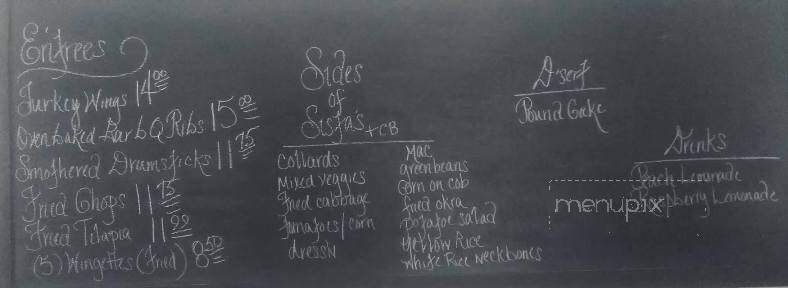 Entrees
Turkey Wings 14.00
Oven baked Bar b Q Ribs 15.00
Smothered Drumsticks 11.75
Fried Chops 11.75
Fried Tilapia 11.99
(5) Wingettes (Fried) 8.50
Sides
of
Sista's +CB
Collards
Mixed veggies
Fried cabbage
Tomatoes/corn
dressN
Mac
greenbeans
Corn on cob
fried okra
potatoe salad
Yellow Rice
White Rice Neckbones
D'sert
Pound Cake
Drinks
Peach Lemonade
Lemonade
menupix